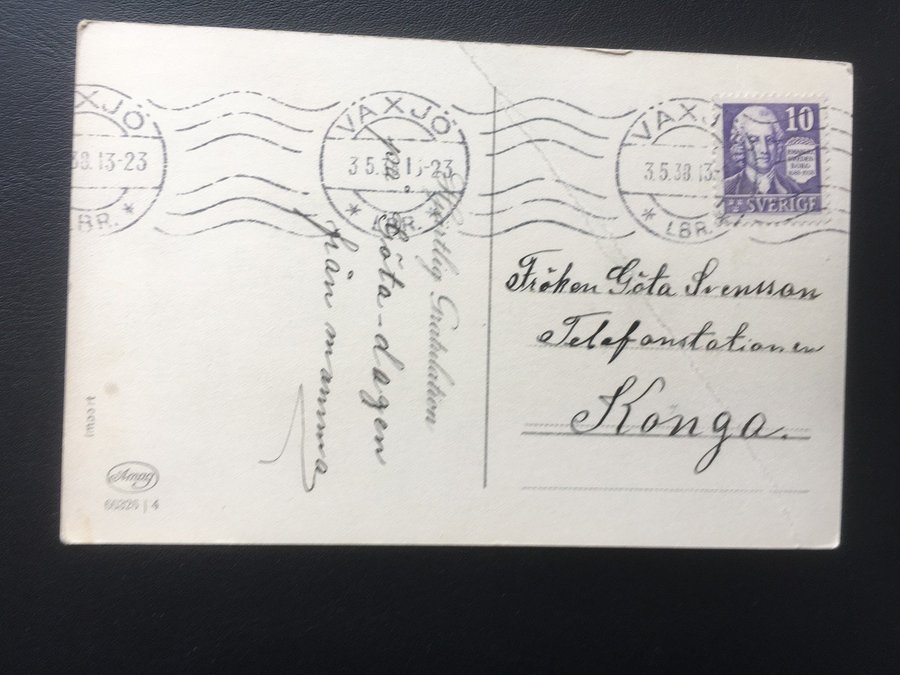 VÄXJÖ
38.13-23
LBR.
VÄXJÖ
3.5.
LBR.
VÄXJ
3.5.38 13-
LBR.
10
SVERIGE
Hjärtlig Gratulation
på Göta-dagen
från mamma
Fröken Göta Svensson
Telefonstationen
Konga.
Import
Amag
66326 | 4